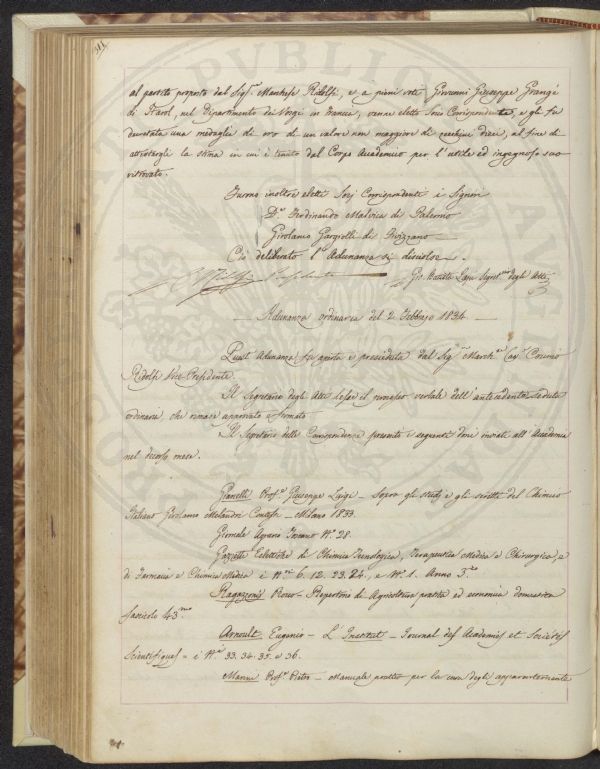 al partito proposto dal Sig.r Marchese Ridolfi, e a pieni voti Giovanni Giuseppe Grangé
di Harol, nel Dipartimento dei Vosgi in Francia, venne eletto Socio Corrispondente, e gli fu
decretata una medaglia di oro di un valore non maggiore di zecchini dieci, al fine di
attestargli la stima in cui è tenuto dal Corpo Accademico per l'utile ed ingegnoso suo
ritrovato.
Furono inoltre eletti Socj Corrispondenti i Signori
D.r Ferdinando Malvica di Palermo
Girolamo Gargiolli di Fivizzano
Ciò deliberato l'Adunanza si disciolse.
C. Ridolfi V. Presidente
Gio. Batista Lapi Segret.rio degli Atti
Adunanza ordinaria del 2 Febbrajo 1834
Quest'Adunanza fu aperta e preseduta dal Sig.r March.se Cav.r Cosimo
Ridolfi Vice-Presidente.
Il Segretario degli Atti lesse il processo verbale dell'antecedente seduta
ordinaria, che rimase approvato e firmato.
Il Segretario delle Corrispondenze presentò i seguenti doni inviati all'Accademia
nel decorso mese.
Gianelli Prof.r Giuseppe Luigi - Sopra gli studj e gli scritti del Chimico
Italiano Girolamo Melandri Contessi - Milano 1833.
Giornale Agrario Toscano N.o 28.
Gazzette Eclettiche di Chimica Tecnologica, Terapeutica Medica e Chirurgica, e
di Farmacia e Chimica Medica i N.ri 6. 12. 23. 24., e N.o 1. Anno 3.zo
Ragazzoni Rocco - Repertorio di Agricoltura pratica ed economia domestica
fascicolo 43.mo
Arnoult Eugenio - L'Institut - Journal des Academies et Societés
Scientifiques - i N.ri 33. 34. 35. e 36.
Manni Prof.r Pietro - Manuale pratico per la cura degli apparentemente